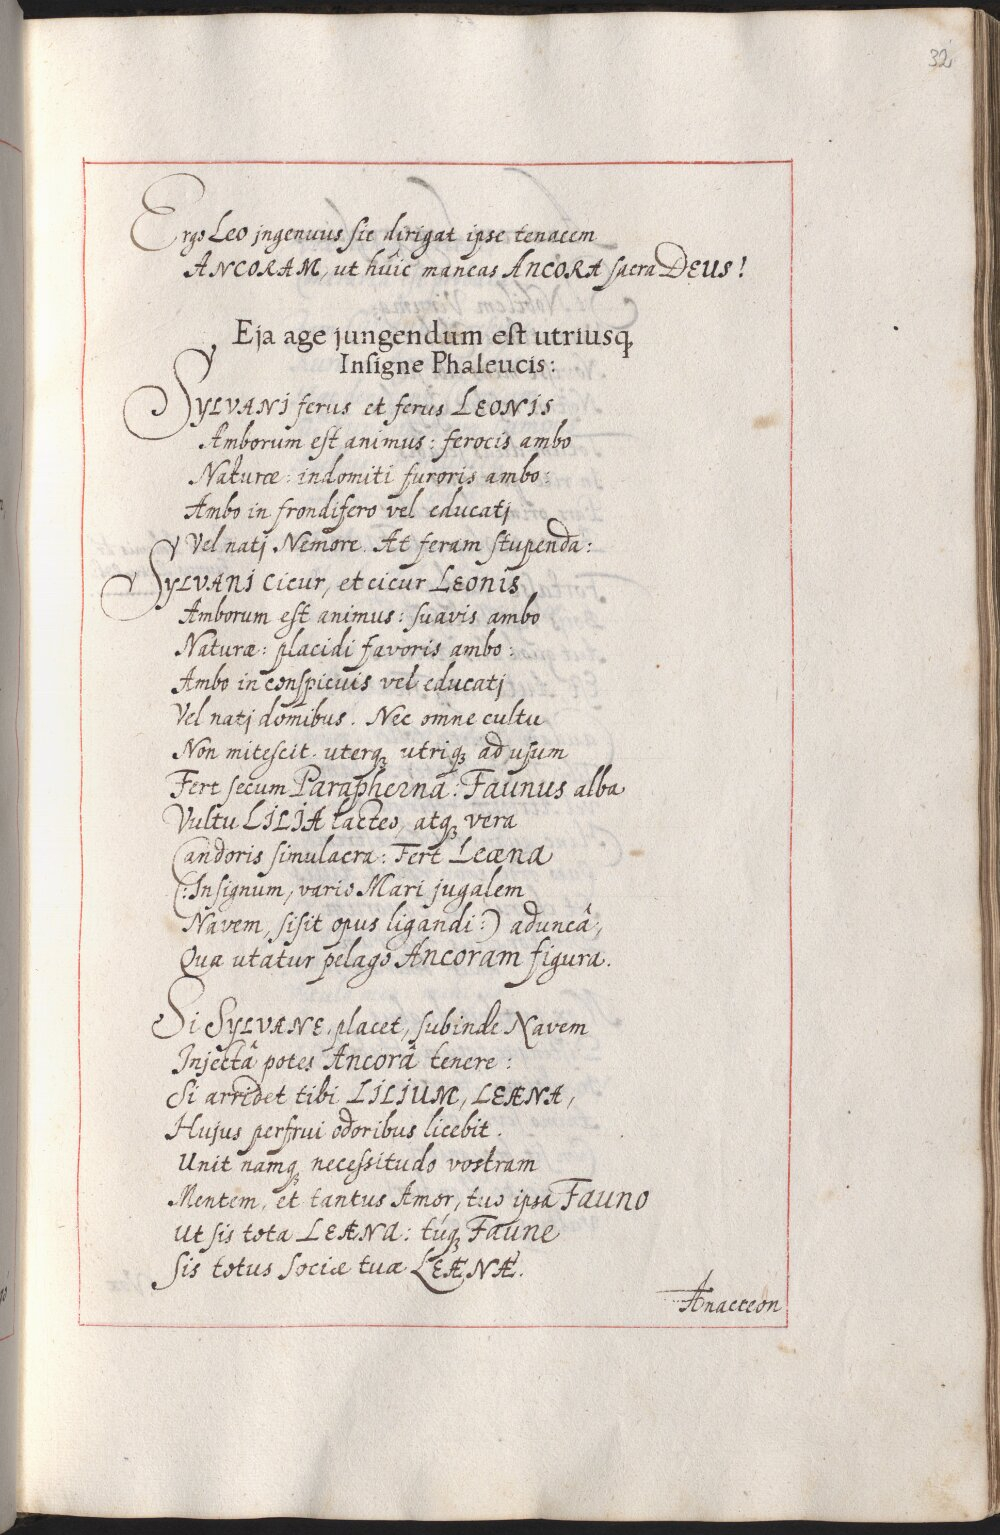 32
Ergo Leo jngenuus sic dirigat ipse tenacem
ANCORAM, ut huic maneas ANCORA sacra DEUS!
Eja age jungendum est utriusq̃
Insigne Phaleucis:
SYLVANI ferus et ferus LEONIS
Amborum est animus: ferocis ambo
Naturæ: indomiti furoris ambo:
Ambo in frondifero vel educatj
Vel natj Nemore. At feram stupenda:
SYLVANI cicur, et cicur LEONIS
Amborum est animus: suavis ambo
Naturæ: placidi favoris ambo:
Ambo in conspicuis vel educatj
Vel natj domibus. Nec omne cultu
Non mitescit. uterq̃ utriq̃ ad usum
Fert secum Parapherna: Faunus alba
Vultu LILIA lacteo, atq̃ vera
Candoris simulacra: Fert Leæna
(:Insignum, vario Mari jugalem
Navem, sisit opus ligandi:) aduncâ,
Qua utatur pelago Ancoram figura.
Si SYLVANE, placet, subinde Navem
Injectâ potes Ancorâ tenere:
Si arridet tibi LILIUM, LEÆNA,
Hujus perfrui odoribus licebit.
Unit namq̃ necessitudo vostram
Mentem, et tantus Amor, tuo ipsa Fauno
Ut sis tota LEÆNA: túq̃ Faune
Sis totus sociæ tuæ LEÆNÆ.
Anacreon